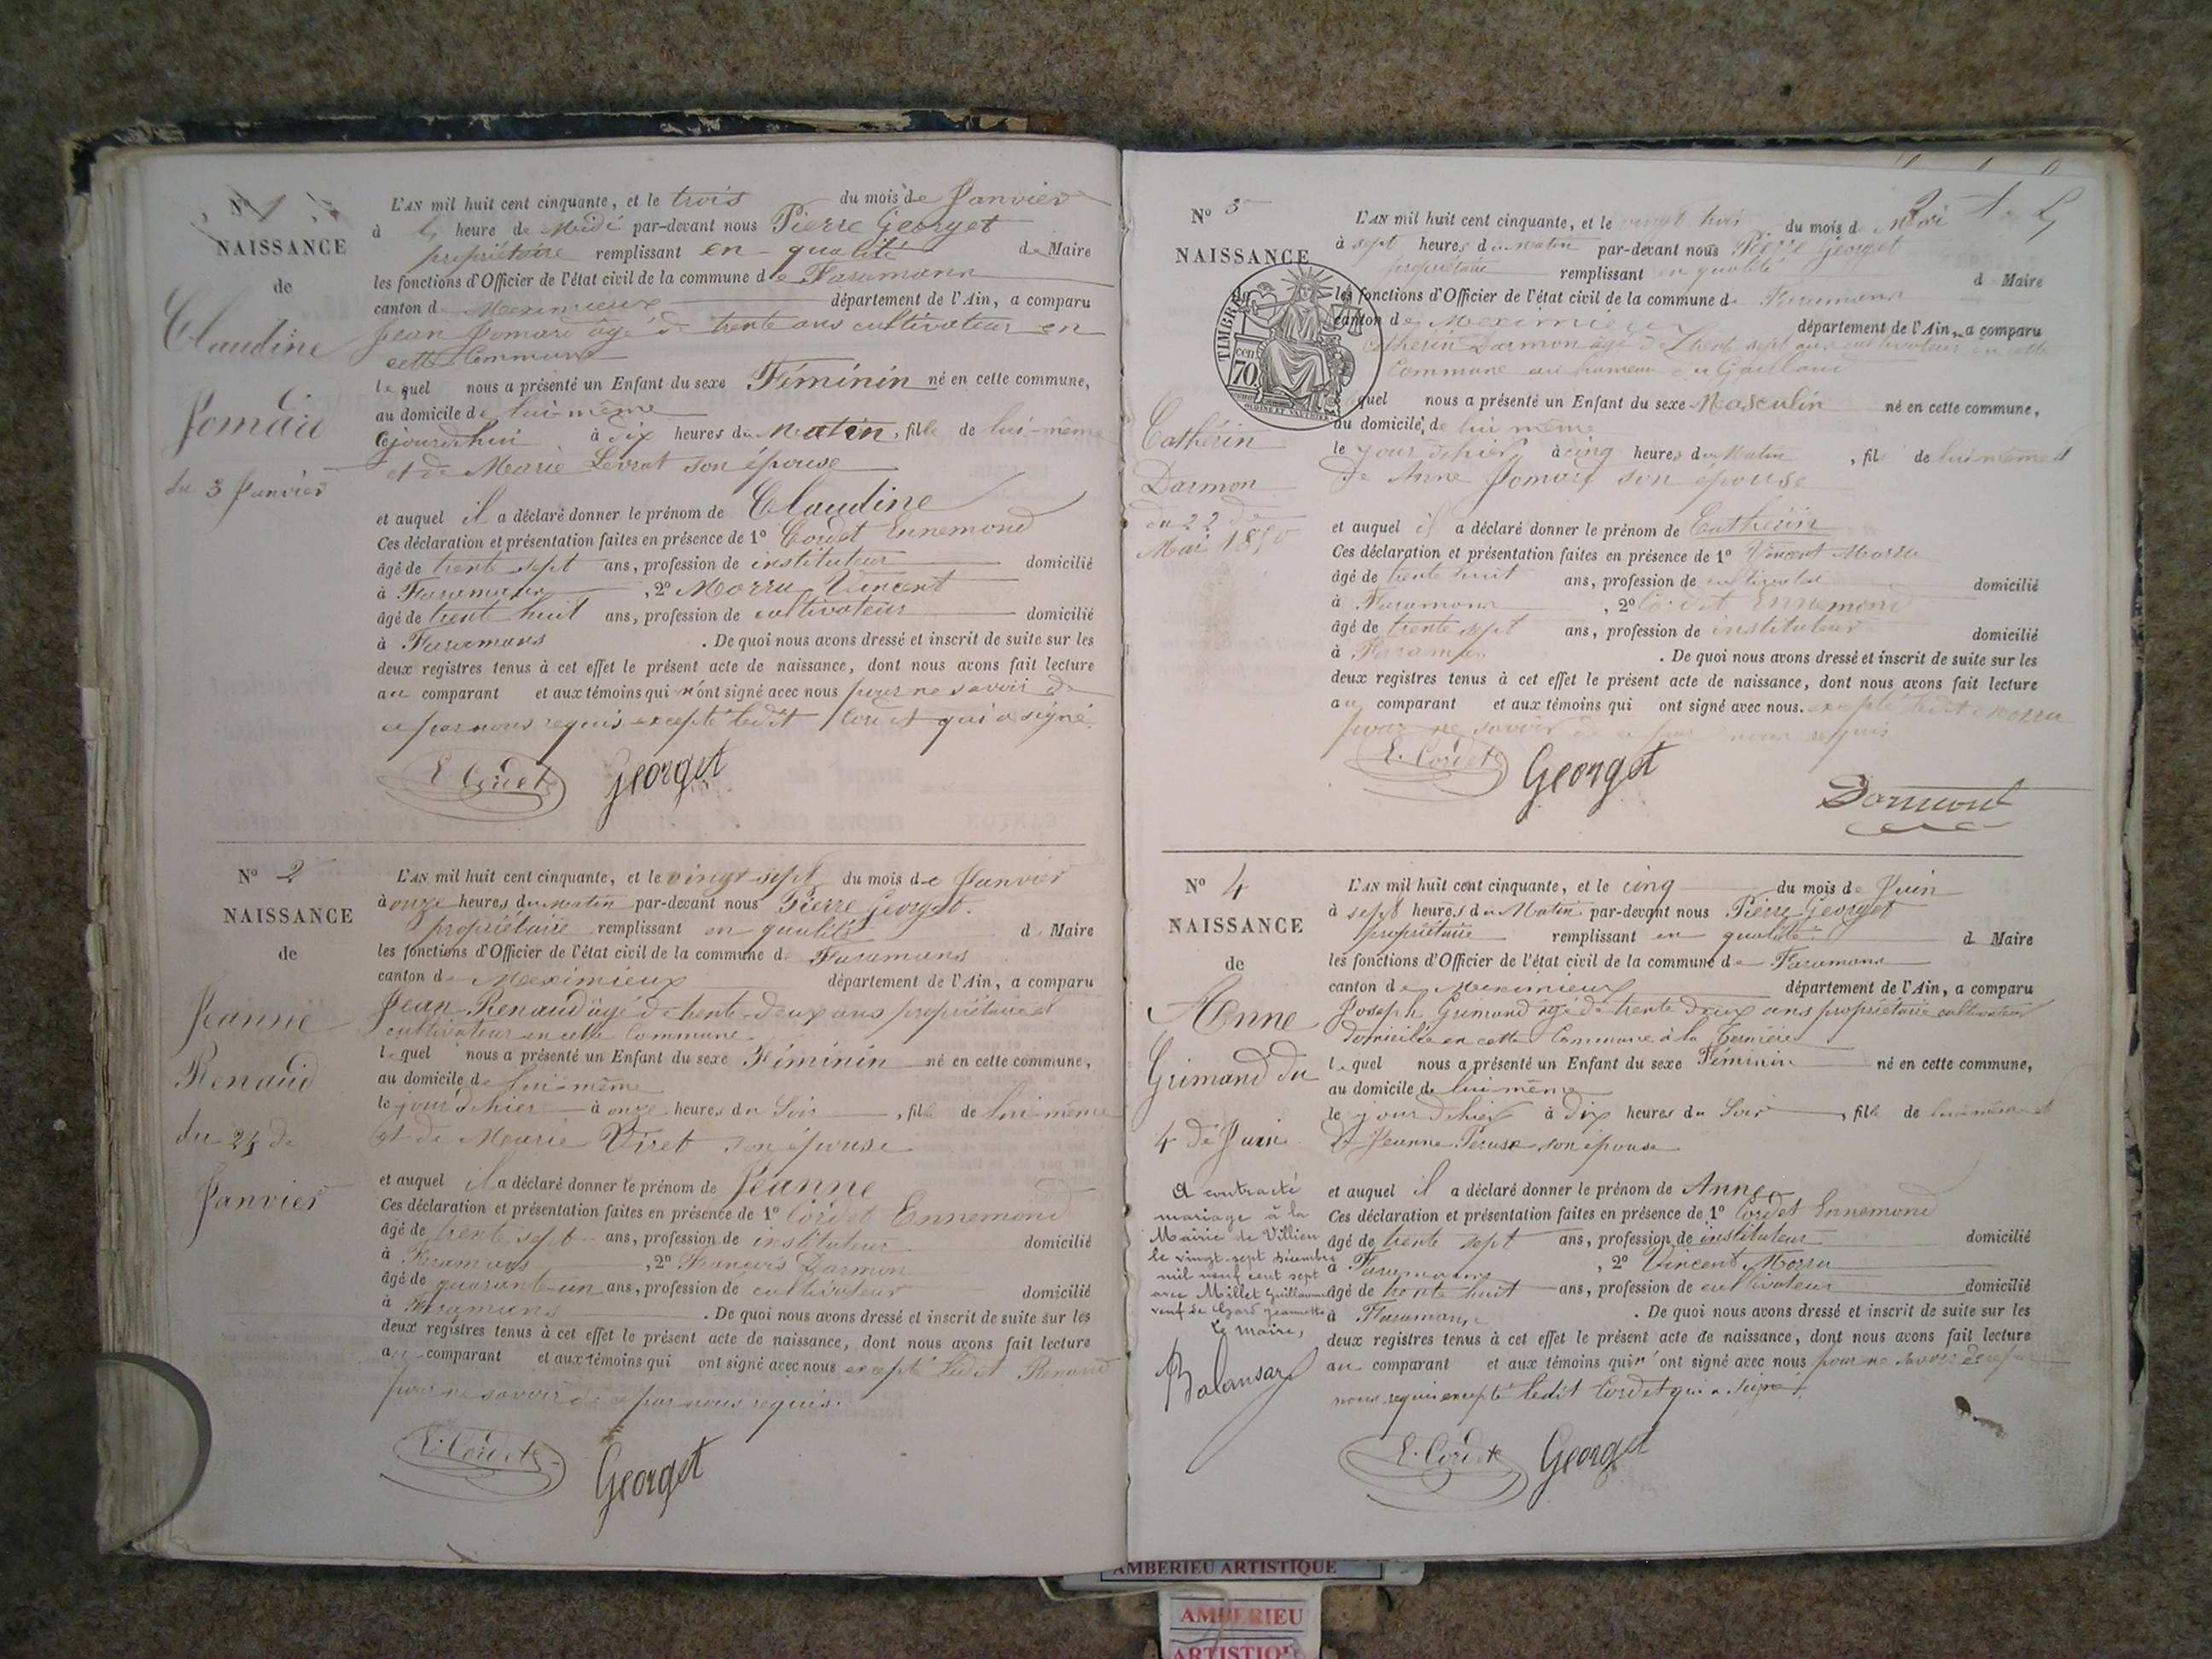 N° 1
NAISSANCE
de
Claudine
Jomard
du 3 Janvier
L'AN mil huit cent cinquante, et le trois du mois de Janvier
à heure de Midi par-devant nous Pierre Georget
propriétaire remplissant en qualité de Maire
les fonctions d'Officier de l'état civil de la commune de Faramans
canton de Meximieux département de l'Ain, a comparu
Jean Jomard âgé de trente ans cultivateur en
cette Commune
lequel nous a présenté un Enfant du sexe Féminin né en cette commune,
au domicile de lui-même
cejourd'hui à dix heures du Matin, fille de lui-même
et de Marie Levrat son épouse
et auquel il a déclaré donner le prénom de Claudine
Ces déclaration et présentation faites en présence de 1° Cordet Ennemond
âgé de trente sept ans, profession de instituteur domicilié
à Faramans, 2° Morru Vincent
âgé de trente huit ans, profession de cultivateur domicilié
à Faramans. De quoi nous avons dressé et inscrit de suite sur les
deux registres tenus à cet effet le présent acte de naissance, dont nous avons fait lecture
au comparant et aux témoins qui n'ont signé avec nous pour ne savoir de
ce par nous requis excepté ledit Cordet qui a signé
E. Cordet Georget
N° 2
NAISSANCE
de
Jeanne
Renaud
du 24 de
Janvier
L'AN mil huit cent cinquante, et le vingt sept du mois de Janvier
à onze heures du matin par-devant nous Pierre Georget.
propriétaire remplissant en qualité d Maire
les fonctions d'Officier de l'état civil de la commune de Faramans
canton de Meximieux département de l'Ain, a comparu
Jean Renaud âgé de trente-deux ans propriétaire et
cultivateur en cette Commune
lequel nous a présenté un Enfant du sexe Féminin né en cette commune,
au domicile de lui-même
le jour d'hier à onze heures du Soir, fille de lui-même
et de Marie Viret son épouse
et auquel il a déclaré donner le prénom de Jeanne
Ces déclaration et présentation faites en présence de 1° Cordet Ennemond
âgé de trente sept ans, profession de instituteur domicilié
à Faramans, 2° François Darmon
âgé de quarante-un ans, profession de cultivateur domicilié
à Faramans. De quoi nous avons dressé et inscrit de suite sur les
deux registres tenus à cet effet le présent acte de naissance, dont nous avons fait lecture
au comparant et aux témoins qui ont signé avec nous excepté ledit Renaud
pour ne savoir de ce par nous requis.
E. Cordet
Georget
N° 3
NAISSANCE
TIMBRE
cen.
70
Cathérin
Darmon
du 22 de
Mai 1850
L'AN mil huit cent cinquante, et le vingt trois du mois de Mai
à sept heures du Matin par-devant nous Pierre Georget
propriétaire remplissant en qualité d Maire
les fonctions d'Officier de l'état civil de la commune de Faramans
canton de Meximieux département de l'Ain, a comparu
Catherin Darmon âgé de trente sept ans cultivateur en cette
Commune au hameau du
lequel nous a présenté un Enfant du sexe Masculin né en cette commune,
au domicile de lui même
le jour d'hier à cinq heures du Matin, fils de lui même et
de Anne Jomard son épouse
et auquel il a déclaré donner le prénom de Catherin
Ces déclaration et présentation faites en présence de 1° Vincent Morru
âgé de trente huit ans, profession de cultivateur domicilié
à Faramans, 2° Cordet Ennemond
âgé de trente sept ans, profession de instituteur domicilié
à Faramans. De quoi nous avons dressé et inscrit de suite sur les
deux registres tenus à cet effet le présent acte de naissance, dont nous avons fait lecture
au comparant et aux témoins qui ont signé avec nous. excepté ledit Morru
pour ne savoir de ce par nous requis
E. Cordet Georget
Darmont
N° 4
NAISSANCE
de
Anne
Grimand du
4 de Juin
A contracté
mariage à la
Mairie de Villieu
le vingt-sept décembre
mil neuf cent sept
avec Millet Guillaume
veuf de Gard Jeannette
Le Maire,
L'AN mil huit cent cinquante, et le cinq du mois de Juin
à sept heures du Matin par-devant nous Pierre Georget
propriétaire remplissant en qualité d Maire
les fonctions d'Officier de l'état civil de la commune de Faramans
canton de Meximieux département de l'Ain, a comparu
Joseph Grimand âgé de trente deux ans propriétaire cultivateur
domicilié en cette Commune à la
lequel nous a présenté un Enfant du sexe Féminin né en cette commune,
au domicile de lui-même
le jour d'hier à dix heures du Soir, fille de lui-même et
de Jeanne son épouse
et auquel il a déclaré donner le prénom de Anne
Ces déclaration et présentation faites en présence de 1° Cordet Ennemond
âgé de trente sept ans, profession de instituteur domicilié
à Faramans, 2° Vincent Morru
âgé de trente huit ans, profession de cultivateur domicilié
à Faramans. De quoi nous avons dressé et inscrit de suite sur les
deux registres tenus à cet effet le présent acte de naissance, dont nous avons fait lecture
au comparant et aux témoins qui n'ont signé avec nous pour ne savoir de ce par
nous requis excepté ledit Cordet qui a signé.
E. Cordet Georget
AMBERIEU ARTISTIQUE
AMBERIEU